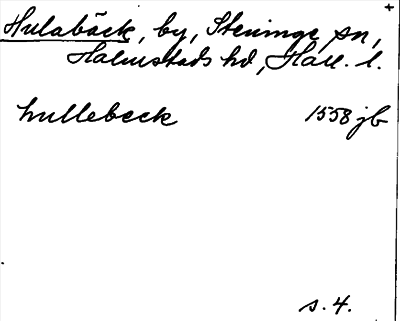 +
Hulabäck, by, Steninge sn,
Halmstads hd, Hall. l.
hullebeck 1558 jb
s. 4.